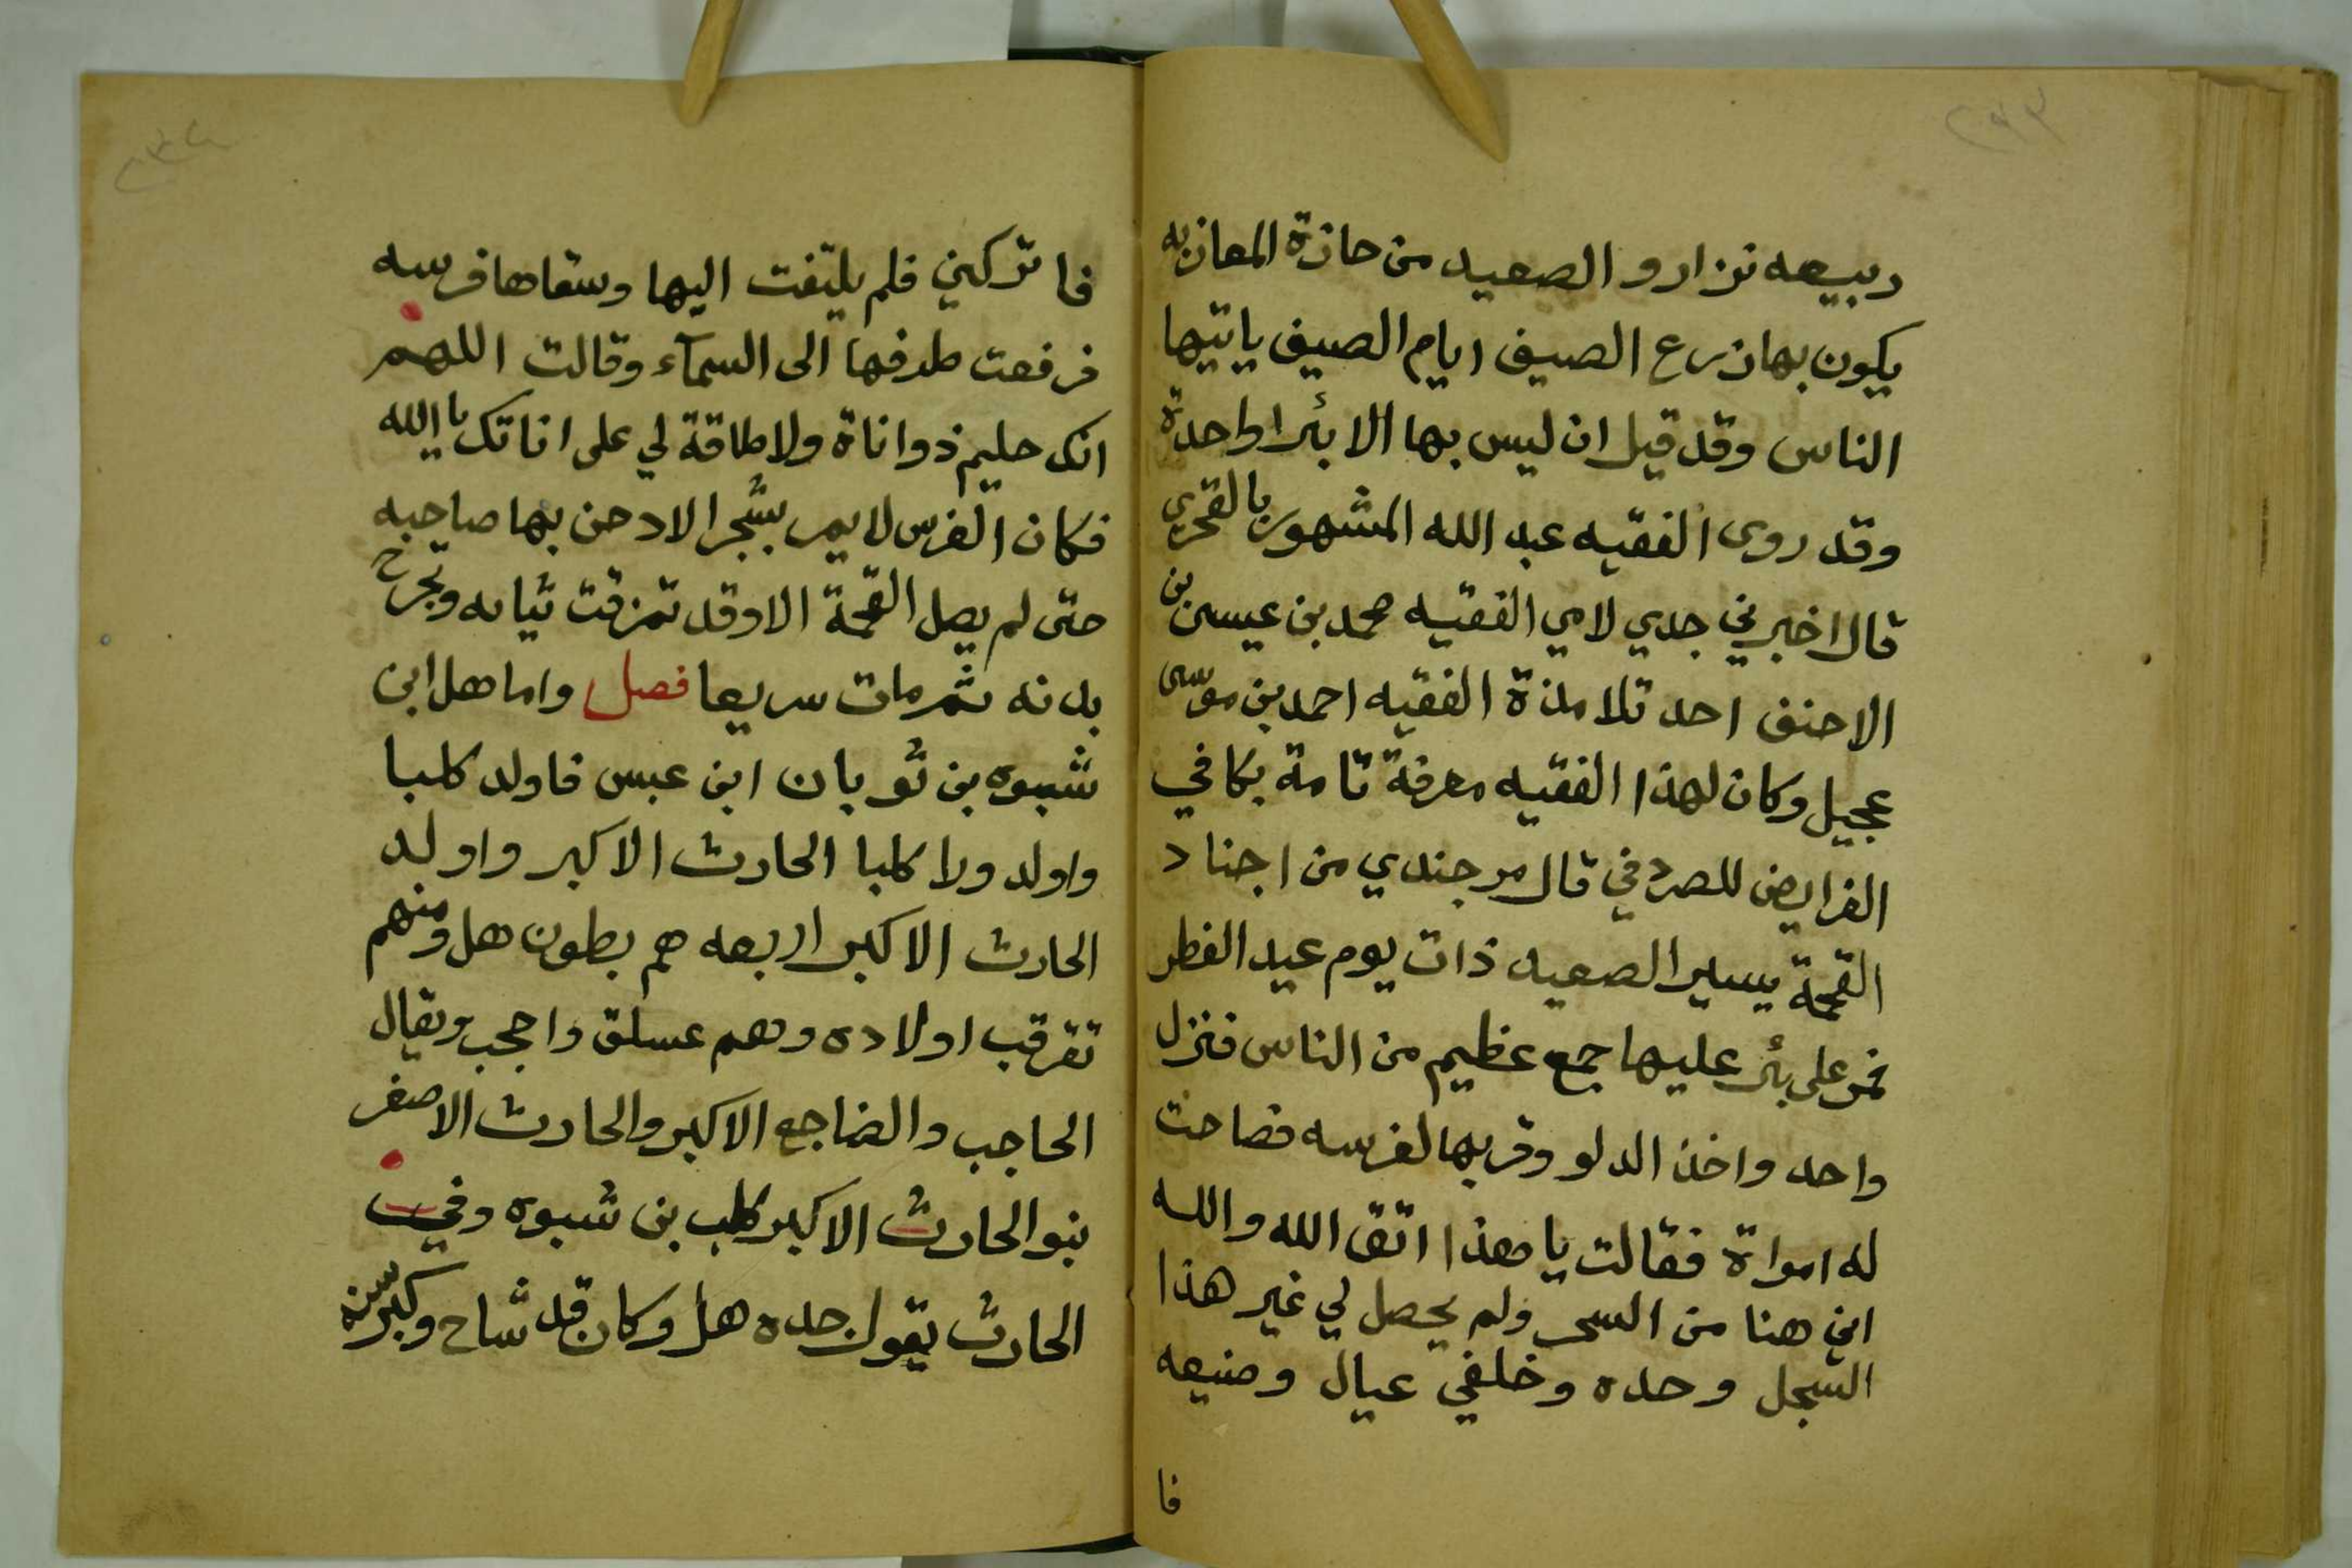 ربيعه نزار و الصعيد من حازة المعازبه
يكون بها زرع الصيف ايام الصيف ياتيها
الناس وقد قيل ان ليس بها الا بئرا واحدة
وقد روى الفقيه عبد الله المشهور بالقحري
قال اخبرني جدي لامي الفقيه محمد بن عيسى بن
الاحنف احد تلامذة الفقيه احمد بن موسى
عجيل وكان لهذا الفقيه معرفة تامة بكافي
الفرايض للصردفي قال مر جندي من اجناد
القحمة يسير الصعيد ذات يوم عيد الفطر
فمر على بئر عليها جمع عظيم من الناس فنزل
واحد واخذ الدلو وقربها لفرسه فصاحت
له امراة فقالت يا هذا اتق الله والله
اني هنا من السحر ولم يحصل لي غير هذا
السجل وحده وخلفي عيال وضيعه
فا
فاتركني فلم يلتفت اليها وسقاها فرسه
فرفعت طرفها الى السمآء وقالت اللهم
انك حليم ذو اناة ولا طاقة لي على اناتك يا الله
فكان الفرس لا يمر بشجر الا دحن بها صاحبه
حتى لم يصل القحمة الا وقد تمزقت ثيابه وتجرح
بدنه ثم مات سريعا فصل واما هل ابن
شبوه بن ثوبان ابن عبس فاولد كلبا
واولد ولا كلبا الحارث الاكبر واولد
الحارث الاكبر اربعه هم بطون هل ومنهم
تفرقب اولاده وهم عسلق واحجب ويقال
الحاجب والضاجع الاكبر والحارث الاصغر
بنو الحارث الاكبر كلب بن شبوه وفي
الحارث يقول جده هل وكان قد شاح وكبر سنه